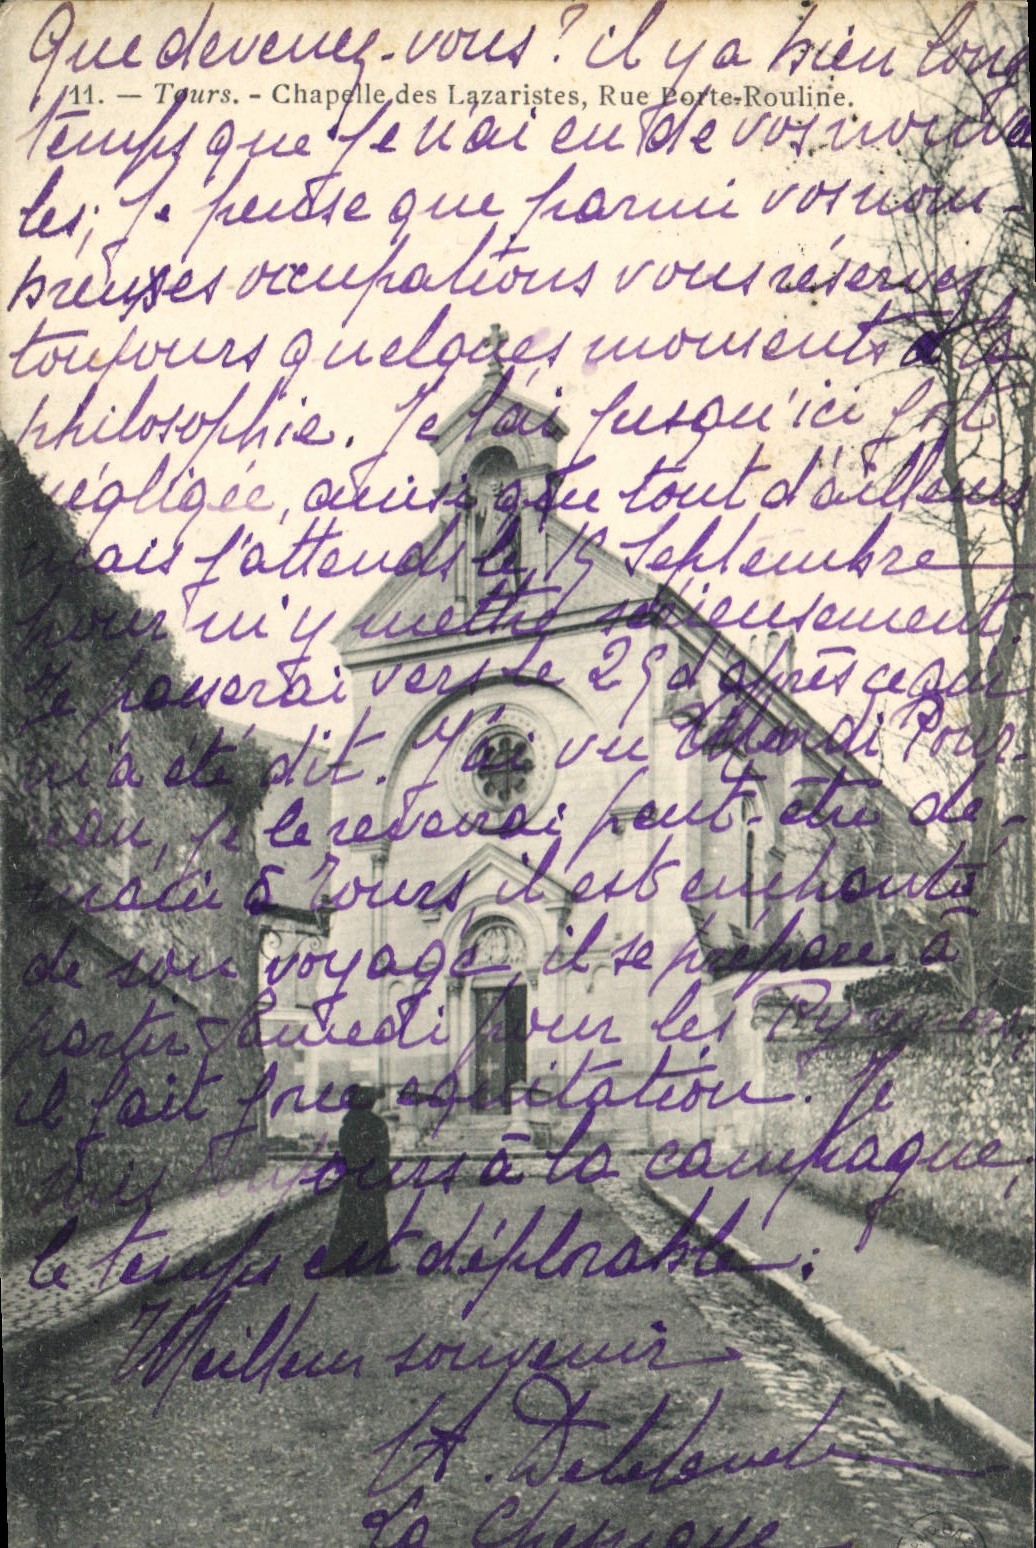 Que devenez-vous ? il y a bien long
11. — Tours. - Chapelle des Lazaristes, Rue Porte-Rouline.
temps que je n'ai eu de vos nouvel
les; je pense que parmi vos nom-
breuses occupations vous réservez
toujours quelques moments à la
philosophie. Je l'ai jusqu'ici fort
négligée, ainsi que tout d'ailleurs
mais j'attends le 15 Septembre
pour m'y mettre sérieusement.
Je passerai vers le 25 d'après ce qui
m'a été dit. J'ai vu Mardi Pour-
nau, je le reverrai peut-être de-
main à Tours, il est enchanté
de son voyage il se prépare à
partir Samedi pour les Pyrénées
il fait force equitation. Je
suis toujours à la campagne,
le temps est déplorable.
Meilleur souvenir
A.
La